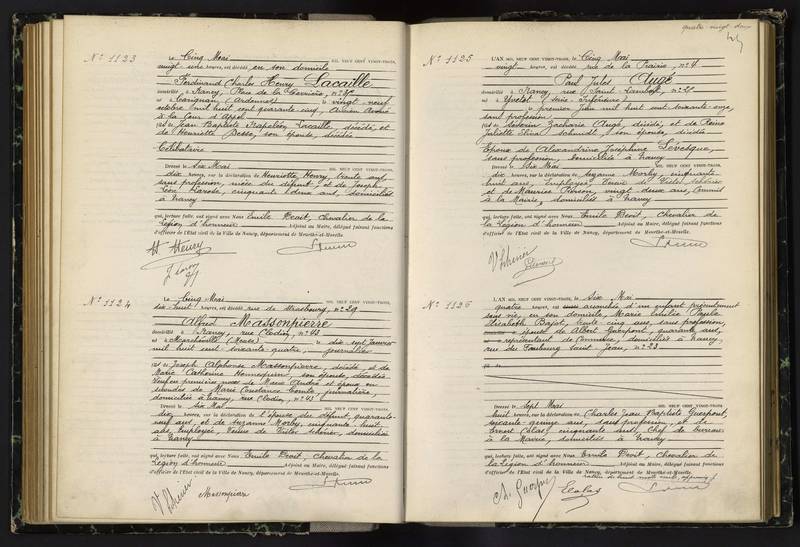 quatre vingt deux
N° 1123
Le Cinq Mai MIL NEUF CENT VINGT-TROIS,
vingt une heures, est décédé en son domicile
Ferdinand Charles Henry Lacaille
domicilié à Nancy, Place de la Carrière, n°
né à Carignan (Ardennes) le vingt neuf
octobre mil huit cent quarante cinq, Ancien Avoué
à la Cour d'Appel
fils de Jean Baptiste Napoléon Lacaille, décédé, et
de Henriette Besse, son épouse, décédée
Célibataire
Dressé le Six Mai MIL NEUF CENT VINGT-TROIS,
dix heures, sur la déclaration de Henriette Henry, trente ans,
sans profession, nièce du défunt, et de Joseph
cinquante deux ans, domiciliés
à Nancy
qui, lecture faite, ont signé avec Nous Emile Droit, Chevalier de la
Légion d'honneur Adjoint au Maire, délégué faisant fonctions
d'officier de l'État civil de la Ville de Nancy, département de Meurthe-et-Moselle.
H Henry
N° 1124
Le Cinq Mai MIL NEUF CENT VINGT-TROIS,
dix huit heures, est décédé rue de Strasbourg, n° 29
Alfred Massonpierre
domicilié à Nancy, rue Clodion, n° 43
né à Marchéville (Meuse) le dix sept Janvier
mil huit cent soixante quatre, journalier
fils de Joseph Alphonse Massonpierre, décédé, et de
Marie Catherine Hannequin, son épouse, décédée
Veuf en premières noces de Marie André et époux en
secondes de Marie Constance Comte, journalière,
domiciliée à Nancy, rue Clodion, n° 43
Dressé le Six Mai MIL NEUF CENT VINGT-TROIS,
dix heures, sur la déclaration de l'épouse du défunt, quarante
neuf ans, et de Suzanne Morly, cinquante huit
ans, Employée, Veuve de Victor Schérier, domiciliées
à Nancy
qui, lecture faite, ont signé avec Nous Emile Droit, Chevalier de la
Légion d'honneur Adjoint au Maire, délégué faisant fonctions
d'officier de l'État civil de la Ville de Nancy, département de Meurthe-et-Moselle.
Massonpierre
N° 1125
L'AN MIL NEUF CENT VINGT-TROIS, le Cinq Mai
vingt heures, est décédé rue de la Prairie, n° 4
Paul Jules Augé
domicilié à Nancy, rue Saint Lambert, n°
né à Yvetot, Seine Inférieure
le premier Juin mil huit cent soixante onze,
sans profession
fils de Séverin Zacharie Augé, décédé, et de Reine
Juliette Schmidt, son épouse, décédée
Epoux de Alexandrine Joséphine Lévesque,
sans profession, domiciliée à Nancy
Dressé le Six Mai MIL NEUF CENT VINGT-TROIS,
dix heures, sur la déclaration de Suzanne Morly, cinquante-
huit ans, Employée, Veuve de Victor Schérier
et de Maurice Pierson, vingt deux ans, Commis
à la Mairie, domiciliés à Nancy
qui, lecture faite, ont signé avec Nous Emile Droit, Chevalier de
la Légion d'honneur Adjoint au Maire, délégué faisant fonctions
d'officier de l'État civil de la Ville de Nancy, département de Meurthe-et-Moselle.
N° 1126
L'AN MIL NEUF CENT VINGT-TROIS, le Six Mai
quatre heures, est accouchée d'un enfant présentement
sans vie, en son domicile, Marie Emilie Paule
Elisabeth Bajot, trente cinq ans, sans profession,
épouse de Albert Guerpont, quarante ans,
représentant de Commerce, domiciliés à Nancy,
rue du Faubourg Saint Jean, n° 23
Dressé le Sept Mai MIL NEUF CENT VINGT-TROIS,
huit heures, sur la déclaration de Charles Jean Baptiste Guerpont,
soixante quinze ans, sans profession, et de
Ernest Colas, cinquante ans, Chef de bureau
à la Mairie, domiciliés à Nancy
qui, lecture faite, ont signé avec Nous Emile Droit, Chevalier de
la Légion d'honneur Adjoint au Maire, délégué faisant fonctions
d'officier de l'État civil de la Ville de Nancy, département de Meurthe-et-Moselle.
rature de huit mots nuls, approuvé
Ch. Guerpont
EColas